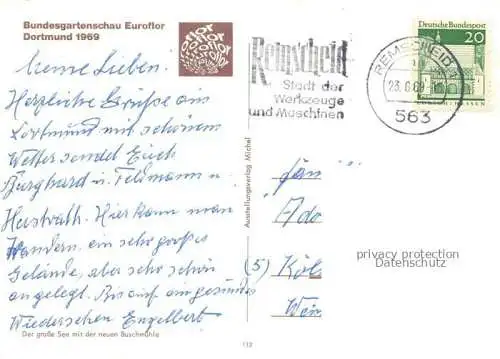 Bundesgartenschau Euroflor
Dortmund 1969
Meine Lieben.
Herzliche Grüsse aus
Dortmund mit schönem
Wetter sendet Euch
Burghard u. Feldmann u.
Hier kann man
Wandern. ein sehr großes
Gelände, aber sehr schön
angelegt. Bis auf ein gesundes
Wiedersehen Engelbert
Der große See mit der neuen Buschmühle
Ausstellungsverlag Michel
112
Remscheid
Stadt der
Werkzeuge
und Maschinen
REMSCHEID 1
23.6.69
563
Deutsche Bundespost
20
Fam
Ado
(5) Köl
privacy protection
Datenschutz